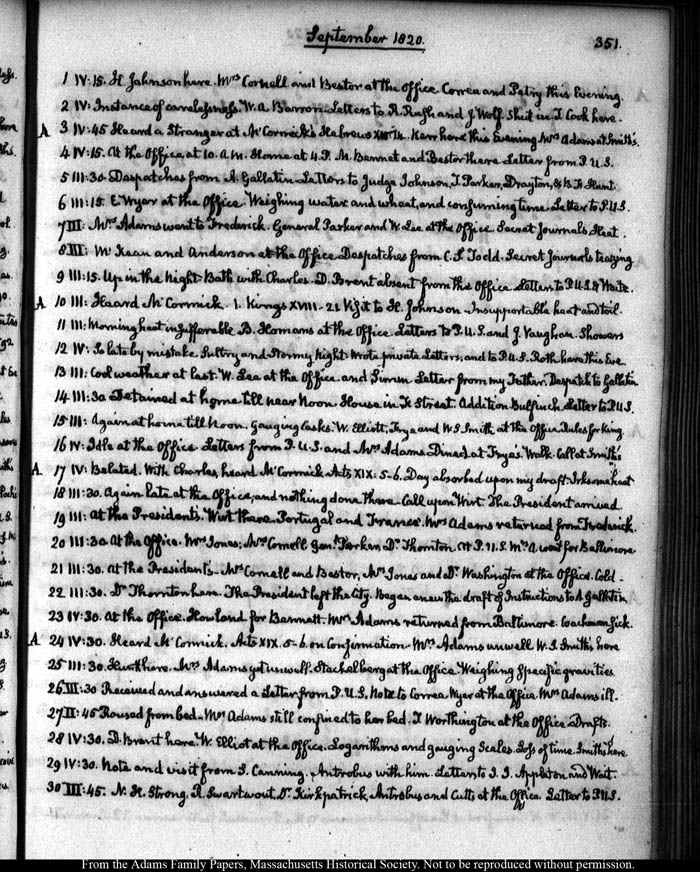 September 1820.
351.
1 IV:15. H. Johnson here. Mrs Cornell and Bestor at the Office Correa and Petry this Evening.
2 IV: Instance of carelessness. W. A. Barron. Letters to R. Rush and J. Wolf. Shut in. T. Cook here.
A 3 IV:45 Heard a Stranger at McCormick's Hebrews XIII. 14. Kerr here this Evening Mrs Adams at Smith's.
4 IV:15. At the Office at 10. A.M. Home at 4. P.M. Bennet and Bestor there Letter from P.U.S.
5 III:30. Despatches from A. Gallatin Letters to Judge Johnson, T. Parker, Drayton, & B. F. Hunt
6 III:15. E. Wyer at the Office. Weighing water and wheat, and consuming time. Letter to P.U.S.
7 III: Mrs Adams went to Frederick. General Parker and W. Lee at the Office Secret Journals Heat.
8 III: McKean and Anderson at the Office Despatches from C. S. Todd. Secret Journals teazing
9 III:15. Up in the Night. Bath with Charles. D. Brent absent from the Office. Letters to P.U.S. & Waite.
A 10 III: Heard McCormick. 1. Kings XVIII-21 Visit to H. Johnson. Insupportable heat and toil.
11 III: Morning heat insufferable B. Homans at the Office. Letters to P.U.S. and J. Vaughan. Showers
12 IV: So late by mistake Sultry and Stormy Night. Wrote private Letters, and to P.U.S. Roth here this Eve
13 III: Cool weather at last. W. Lee at the Office and Letter from my Father. Despatch to Gallatin
14 III:30 Detained at home till near Noon. House in F Street. Addition. Bulfinch Letter to P.U.S.
15 III: Again at home till Noon. Gauging Casks. W. Elliott, Frye and W. S. Smith, at the Office Rules for
16 IV: Idle at the Office Letters from P.U.S. and Mrs Adams Dined at Fryes. Walk. Call at Smith's
A 17 IV: Belated. With Charles, heard McCormick Acts XIX: 5-6. Day absorbed upon my draft. Irksome heat
18 III:30. Again late at the Office, and nothing done there. Call upon Wirt. The President arrived.
19 III: At the Presidents. Wirt there. Portugal and France. Mrs Adams returned from Frederick.
20 III:30. At the Office. Mrs Jones, Mrs Cornell Genl Parker Dr Thornton. At P.U.S. Mrs A. went for Baltimore
21 III:30. At the President's. Mrs Cornell and Bestor, Mrs Jones and Dr Washington at the Office. Cold.
22 III:30. Dr Thornton here. The President left the City. Began anew the draft of Instructions to A Gallatin.
23 IV:30. At the Office. Howland for Bennett. Mrs Adams returned from Baltimore. Coachman sick.
A 24 IV:30. Heard McCormick. Acts XIX. 5-6. on Confirmation. Mrs Adams unwell W. S. Smith's here
25 III:30. here. Mrs Adams yet unwell. Stackelberg at the Office. Weighing Specific gravities
26 III:30 Received and answered a Letter from P.U.S. Note to Correa Wyer at the Office. Mrs Adams ill.
27 II:45 Roused from bed. Mrs Adams still confined to her bed. T. Worthington at the Office. Drafts.
28 IV:30. D. Brent here. W. Elliot at the Office. Logarithms and gauging Scales. Loss of time. Smith's here
29 IV:30. Note and visit from S. Canning. Antrobus with him. Letters to J. J. Appleton and Wait.
30 III:45. N. H. Strong. R. Swartwout, Dr Kirkpatrick, Antrobus and Cutts at the Office. Letter to P.U.S.
From the Adams Family Papers, Massachusetts Historical Society. Not to be reproduced without permission.